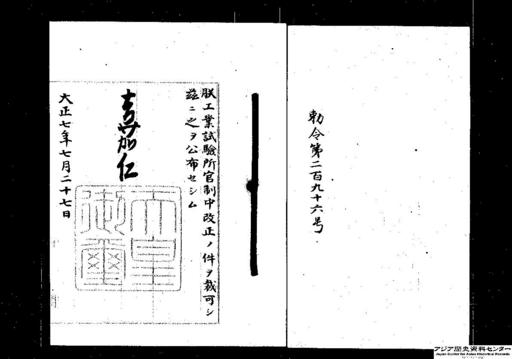 勅令第二百九十六号
朕工業試驗所官制中改正ノ件ヲ裁可シ
茲ニ之ヲ公布セシム
嘉仁
天皇御璽
大正七年七月二十七日
アジア歴史資料センター
Japan Center for Asian Historical Records